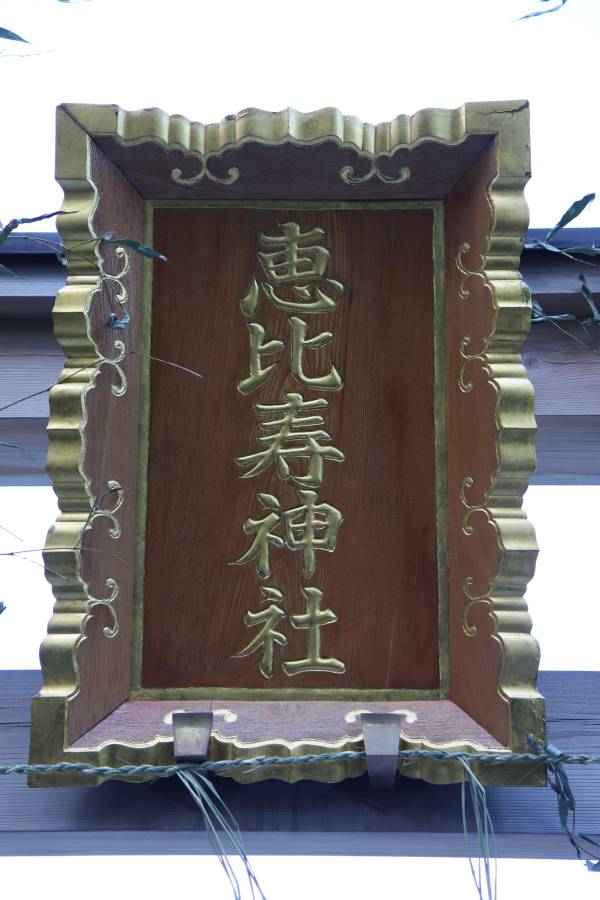 恵比寿神社